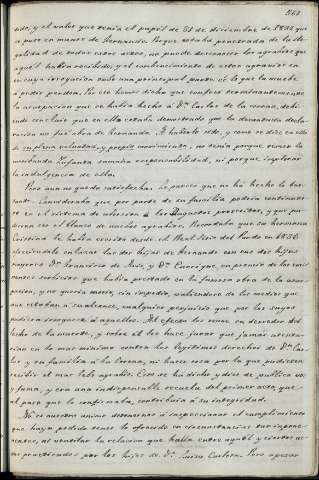 561
sido, y el valor que tenia el papel de 31 de diciembre de 1832 que
se puso en manos de Fernando. Porque estaba penetrada de la ile-
galidad de todos esos actos, no puede desconocer los agravios que
aquel habia recibido, y el conocimiento de estos agravios en
en cuya irrogacion tenia una principal parte es lo que la mueve
á pedir perdon. Por eso hemos dicho que confiesa terminantemente
la usurpacion que se habia hecho á Dn. Carlos de la corona, debi-
endo concluir que en ella estaba demostrado que la decantada decla-
racion no fué obra de Fernando. Á haberlo sido, y como se dice en ella
de su plena voluntad, y propio movimiento, no tenia porque temer la
moribunda Infanta ninguna responsabilidad, ni porque implorar
la indulgencia de ellos.
Pero aun no queda satisfecha. Le parece que no ha hecho lo bas-
tante. Consideraba que por parte de su familia podria continuar-
se en el sistema de aversion á los Augustos proscritos, y que pu-
dieran ser el blanco de nuevos agravios. Recordaba que su hermana
Cristina le habia escrito desde el Real Sitio del Pardo en 1836
ofreciendole enlazar las dos hijas de Fernando con sus dos hijos
mayores Dn. Francisco de Asis, y Dn. Enrique, en premio de los rele-
vantes servicios que habia prestado en la famosa obra de la usur-
pacion, y no queria morir sin impedir, valiendose de los medios que
aun estaban á su alcance, cualquier perjuicio que por los suyos
pudiera irrogarse á aquellos. Al efecto los reune en derredor del
lecho de la muerte, y sobre él les hace jurar que jamas atenta-
rian en lo mas minimo contra los legitimos derechos de Dn. Car-
los, y su familia á la Corona, ni hacer cosa por la que pudiesen
recibir el mas leve agravio. Esto se ha dicho y dice de publica voz
y fama, y era una indispensable secuela del primer acto, que
al paso que lo confirmaba, contribuia á su integridad.
No es nuestro animo detenernos á inspeccionar el cumplimiento
que haya podido tener lo ofrecido en circunstancias tan impone-
nentes, ni ventilar la relacion que habia entre aquel y ciertos ac-
tos practicados por los hijos de Da. Luisa Carlota. Pero apesar